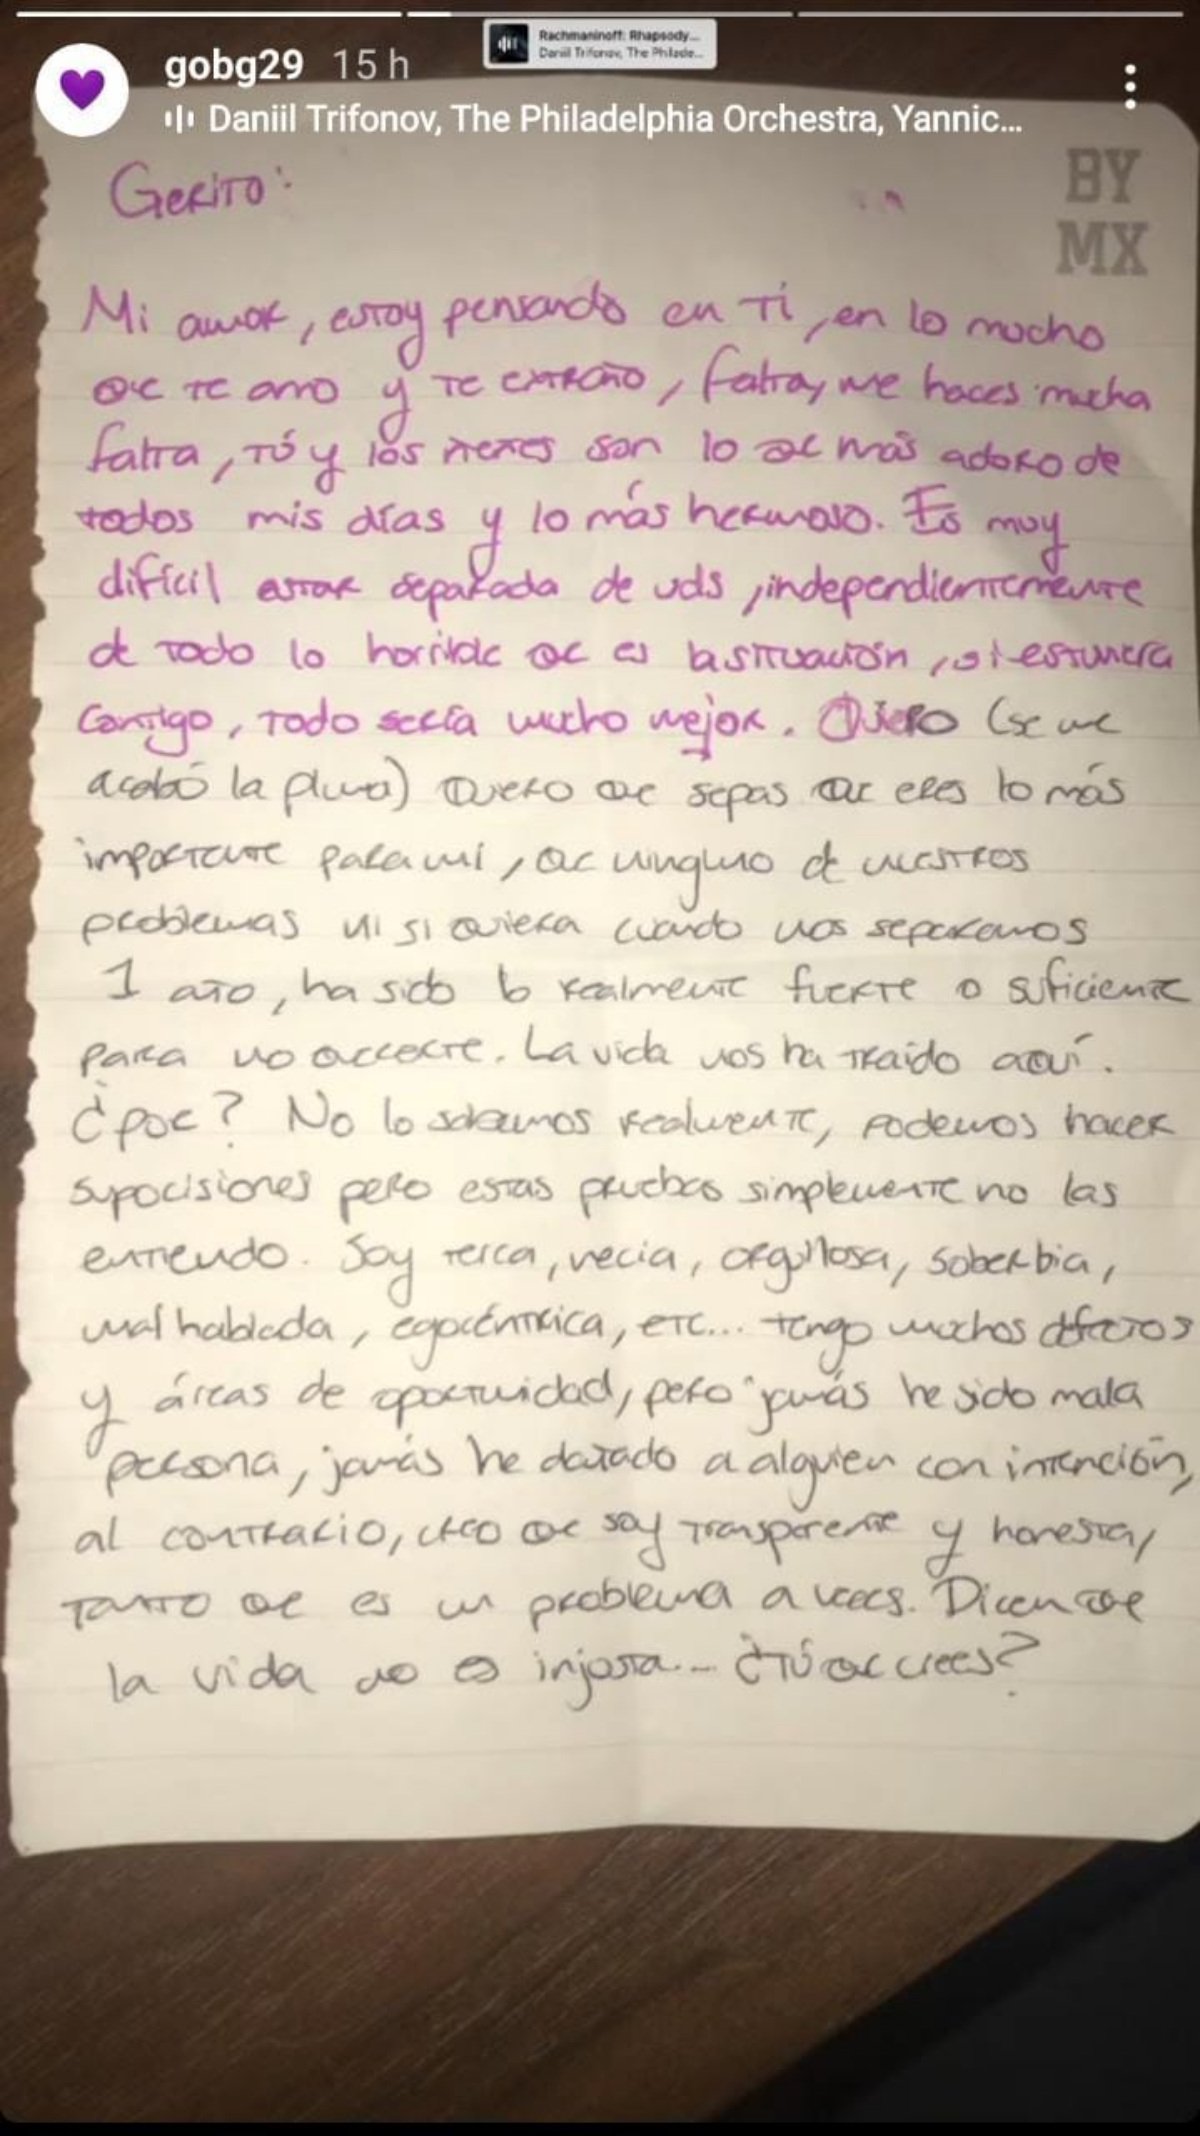 Rachmaninoff: Rhapsody...
Daniil Trifonov, The Philade...
gobg29 15 h
Daniil Trifonov, The Philadelphia Orchestra, Yannic...
BY
MX
Gerito:
Mi amor, estoy pensando en Ti, en lo mucho
qe te amo y te extraño, falta, me haces mucha
falta, tú y los nenes son lo qe más adoro de
todos mis días y lo más hermoso. Es muy
difícil estar separada de uds, independientemente
de todo lo horrible qe es la situación, si estuviera
contigo, todo sería mucho mejor. Quiero (se me
acabó la pluma) Quiero qe sepas qe eres lo más
importante para mí, qe ninguno de nuestros
problemas ni si quiera cuando nos separamos
1 año, ha sido lo realmente fuerte o suficiente
para no quererte. La vida nos ha traido aquí.
¿pqe? No lo sabemos realmente, podemos hacer
supocisiones pero estas pruebas simplemente no las
entiendo. Soy terca, necia, orgullosa, soberbia,
mal hablada, egocéntrica, etc... tengo muchos defectos
y áreas de oportunidad, pero jamás he sido mala
persona, jamás he dañado a alguien con intención,
al contrario, creo qe soy transparente y honesta,
tanto qe es un problema a veces. Dicen qe
la vida no es injusta... ¿Tú qe crees?